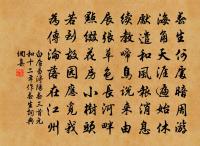 春生何處闇周遊
海角天涯遍始休
先遣和風報消息
續教啼鳥說來由
展張草色長河畔
點綴花房小樹頭
若到故園應覓我
為傳淪落在江州
白居易潯陽春三首元
和十二年作春生詞典
網集